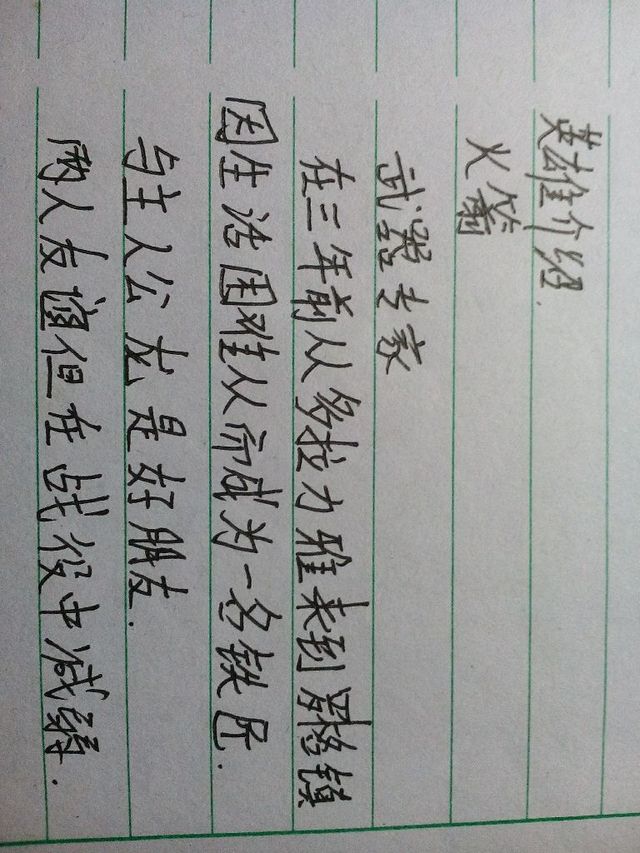 英雄介绍.
火箭
武器专家
在三年前从多拉力雅来到罗格镇
因生活困难从而成为一名铁匠.
与主人公龙是好朋友.
两人友谊但在战役中减弱.